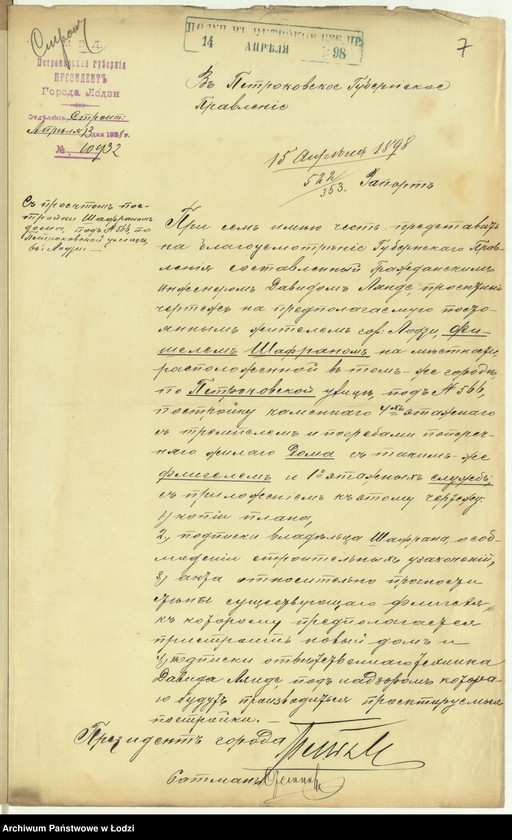 Строит.
7
ПОЛУЧ. ВЪ ПЕТРОКОВ. ГУБ. ПР.
14 АПРѢЛЯ 98
М. В. Д.
Петроковская Губернія
ПРЕЗИДЕНТЪ
Города Лодзи
Отдѣленіе Строит.
Апрѣля 13 дня 1898 г.
№ 10932
Въ Петроковское Губернское
Правленіе
15 Апрѣля 1898
522/353. Рапортъ
Съ проэктомъ пос-
тройки Шафраномъ
дома, подъ № 566, по
Петроковской улицѣ,
въ г. Лодзи. —
При семъ имѣю честь представить
на благоусмотрѣніе Губернскаго Прав-
ленія составленный Гражданскимъ
инженеромъ Давидомъ Ланде, проэктный
чертежъ на предполагаемую посто-
яннымъ жителемъ гор. Лодзи, Фи-
шелемъ Шафраномъ на мѣстности,
расположенной въ томъ-же городѣ,
по Петроковской улицѣ, подъ № 566,
постройку каменнаго 4хъ этажнаго
съ и погребами попереч-
наго жилаго дома съ такимъ-же
флигелемъ и 1о этажныхъ службъ;
съ приложеніемъ къ этому чертежу:
1) копіи плана,
2, подписки владѣльца Шафрана о соб-
людении строительныхъ узаконеній,
3) акта относительно прочности
стѣны существующаго флигеля
къ которому предполагается
пристроить новый домъ и
4) подписки отвѣтственнаго техника
Давида Ланде, подъ надзоромъ котора-
го будутъ производится проэктируемыя
постройки. —
Президентъ города
Ратманъ
Archiwum Państwowe w Łodzi